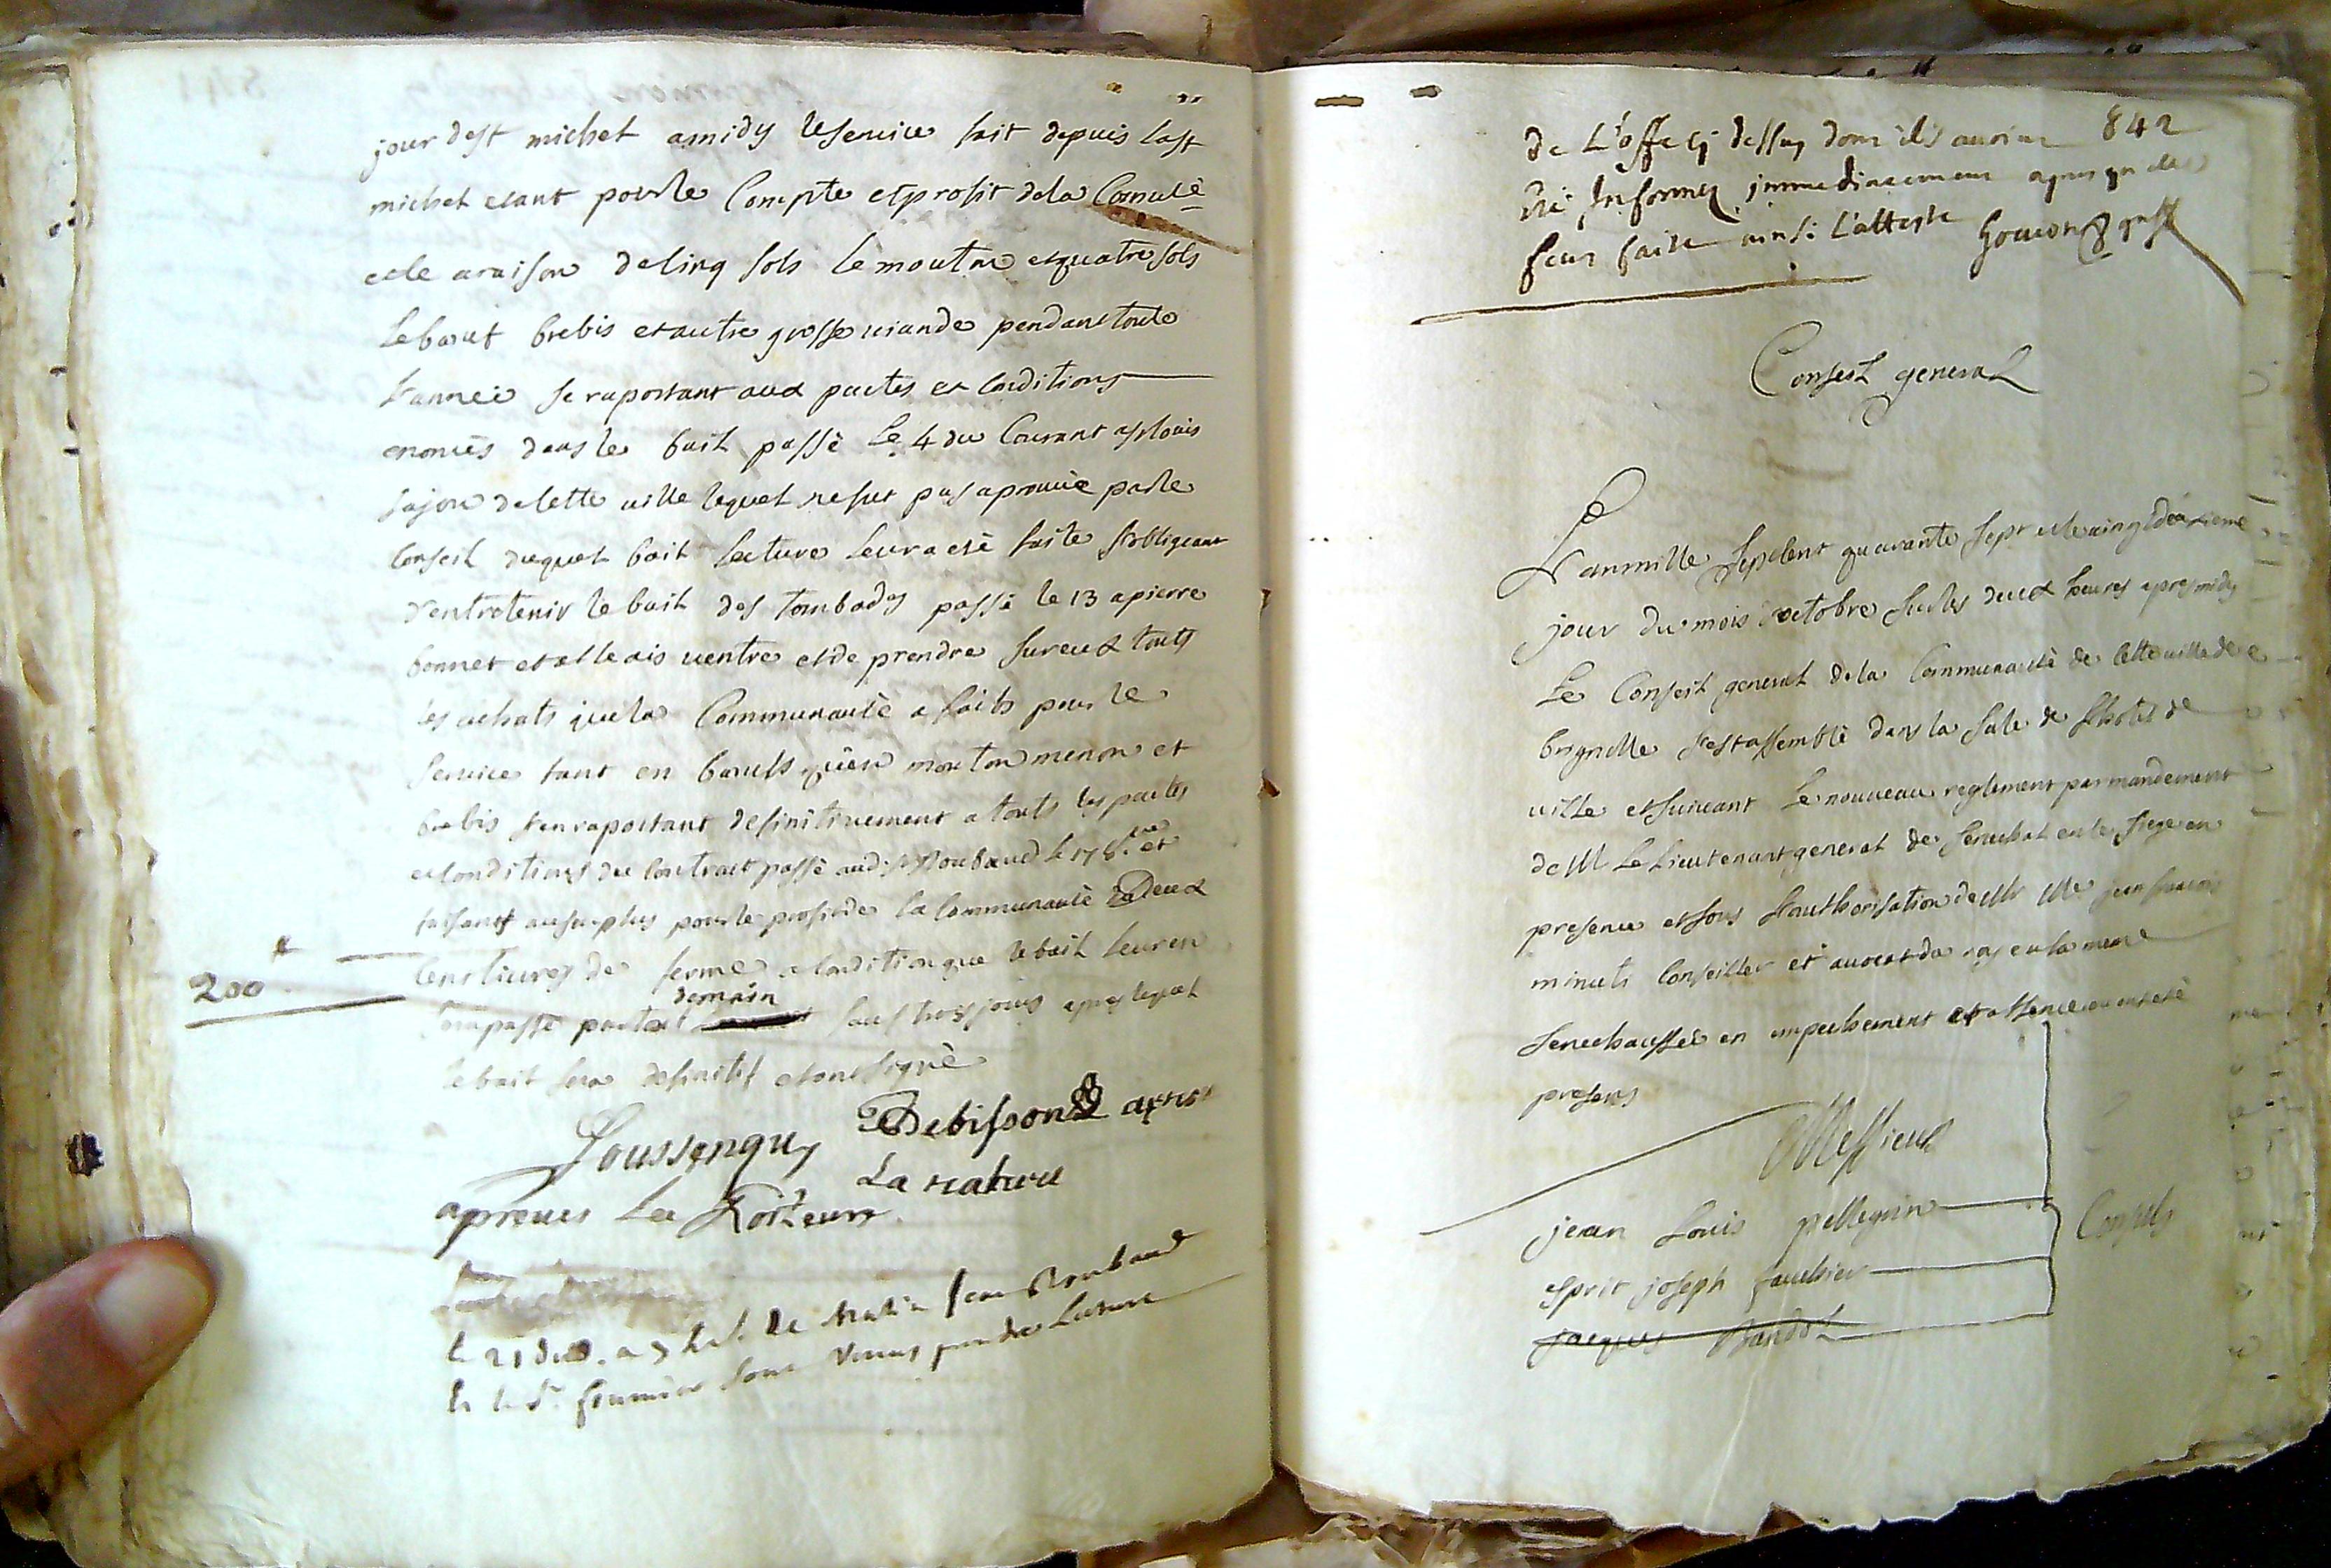 jour dest michel amidy le service fait depuis last
michel etant pour le Compte et profit dela Comuté
et le araison de cinq sols le mouton et quatre sols
le bœuf brebis et autre grosse viande pendant toute
l'année se raportant aux pactes et conditions
enoncés dans le bail passé le 4 du Courant a Louis
de cette ville lequel ne fut pas aprouvé par le
Conseil duquel bail lecture leur a eté faite s'obligeant
d'entretenir le bail des tombades passé le 13 a pierre
bonnet et ventre et de prendre sur eux touts
les achats que la Communauté a faits pour le
service tant en bœufs qu'en mouton menon et
brebis s'en raportant definitivement a touts les pactes
et conditions du contract passé audit Roubaud le 17 8bre et
faisant au surplus pour le profit de la Communauté de Deux
200 Cens livres de ferme a condition que le bail leur en
sera passé demain sauf trois jours apres lequel
le bail sera definitif et ont signé
Joussenguy Debisson
aprouves La Roiteure La nature
le 21 du d. a 7 h. de Matin Jean Roubaud
et le Sr. fournier sont venus prendre Lecture
de L'offre cj dessus dont ils avoint 842
été Informez immediatement apres qu'elle
feut faite ainsi L'atteste Gouion greff
Conseil general
L'an mille sepcent quarante sept et le vingt deuxieme
jour du mois d'octobre sur les deux heures apres midy
Le Conseil general dela Communauté de cette ville de
brignolle s'est assemblé dans la sale de l'hotel de
ville et suivant le nouveau reglement par mandement
de Mr Le Lieutenant general de senechal en le siege en
presence et sous l'authorisation de Mr Me jean francois
minuti Conseiller et avocat du roy en la meme
senechaussée en empechement et absence ou ont eté
presens
Messieurs
jean Louis pellegrin
Esprit joseph fauchier Consuls
jacques Bandol